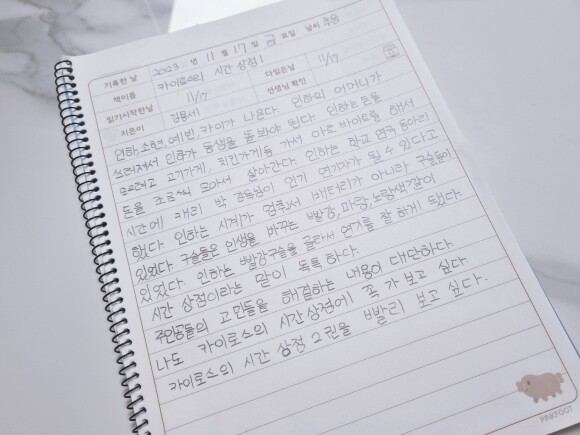 기록한 날 2023 년 11 월 17 일 금 요일 날씨 추움
책이름 카이로스의 시간 상점 1
읽기시작한날 11/17 다읽은날 11/17
지은이 김용세 선생님 확인
인하, 소현, 예빈, 카이가 나온다. 인하의 어머니가
쓰러져서 인하가 동생을 돌봐야 된다. 인하는 돈을
모으려고 고기가게, 치킨가게등 가서 아르바이트를 해서
돈을 조금씩 모아서 살아간다. 인하는 학교 연극 동아리
시간에 캐리 박 감독님이 인기 연기자가 될 수 있다고
했다. 인하는 시계가 멈춰서 배터리가 아니라 구슬들이
있었다. 구슬들은 인생을 바꾸는 빨강, 파랑, 노랑색깔이
있었다. 인하는 빨강구슬을 골라서 연기를 잘 하게 됐다.
시간 상점이라는 말이 독특 하다.
주인공들의 고민들을 해결하는 내용이 대단하다.
나도 카이로스의 시간상점에 꼭 가보고 싶다.
카이로스의 시간 상점 2권을 빨리 보고 싶다.
PINKFOOT